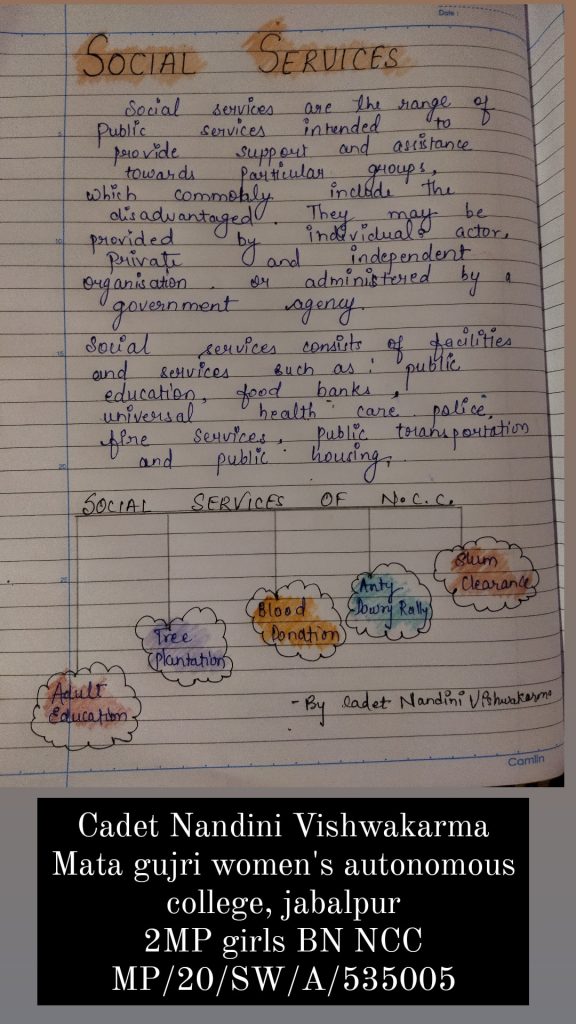 Date :
SOCIAL SERVICES
Social services are the range of
Public services intended to
provide support and assistance
towards particular groups,
which commonly include the
disadvantaged. They may be
provided by individuals actor,
Private and independent
organisation. or administered by a
government agency.
Social services consists of facilities
and services such as : public
education, food banks,
universal health care police,
fire services, public transportation
and public housing,
SOCIAL SERVICES OF N.C.C.
Slum
Clearance
Anty
Dowry Rally
Blood
Donation
Tree
Plantation
Adult
Education
- By Cadet Nandini Vishwakarma
Camlin
Cadet Nandini Vishwakarma
Mata gujri women's autonomous
college, jabalpur
2MP girls BN NCC
MP/20/SW/A/535005